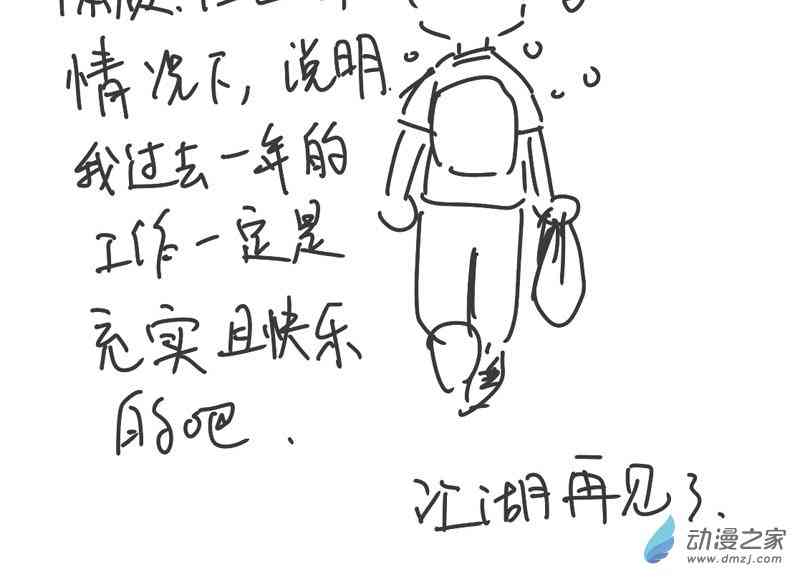 情况下，说明
我过去一年的
工作一定是
充实且快乐
的吧.
江湖再见了.
动漫之家
www.dmzj.com